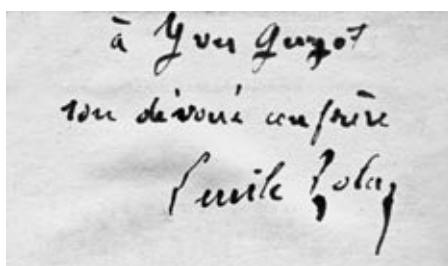 à Yves Guyot
son dévoué confrère
Emile Zola